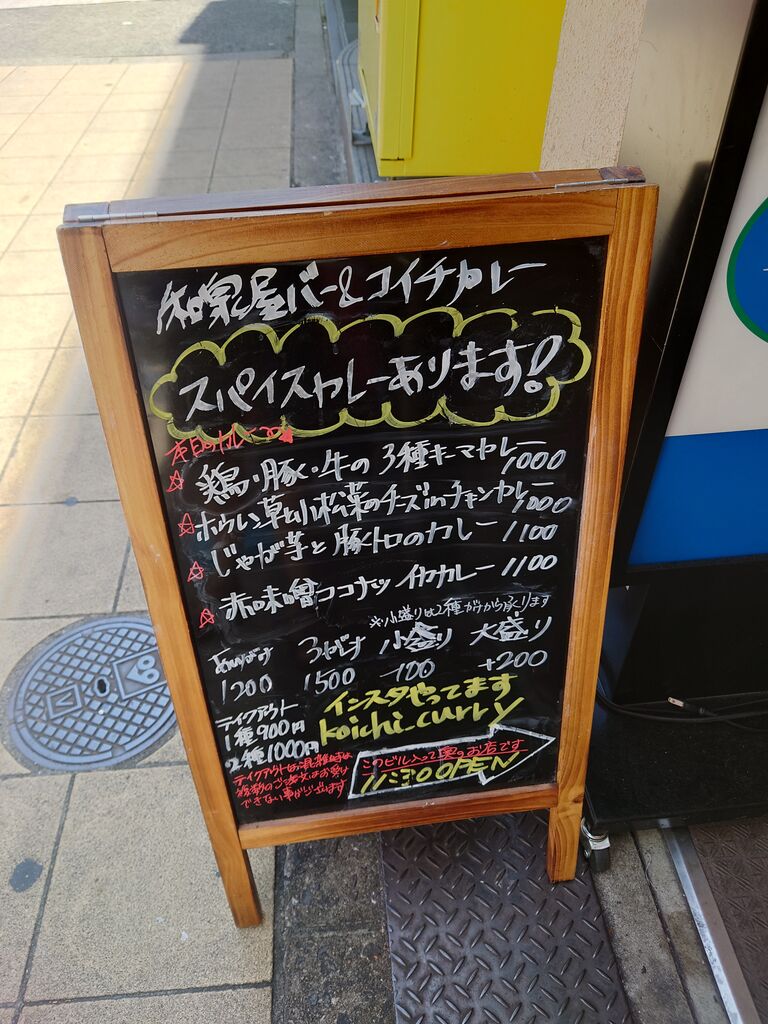 和泉屋バー&コイチカレー
スパイスカレーあります!
本日のカレー
☆鶏・豚・牛の3種キーマカレー 1000
☆ホウレン草小松菜のチーズinチキンカレー 1000
☆じゃが芋と豚トロのカレー 1100
☆赤味噌ココナッツイカカレー 1100
※小盛りは2種がけから承ります
あいがけ 3がけ 小盛り 大盛り
1200 1500 -100 +200
テイクアウト
1種900円
2種1000円
インスタやってます
koichi_curry
テイクアウトは混雑時は
複数のご注文はお受け
できない事がございます
このビル入って奥のお店です
11:30 OPEN